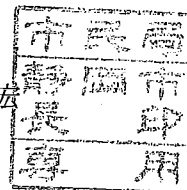 市民局
靜岡市
長印
專用